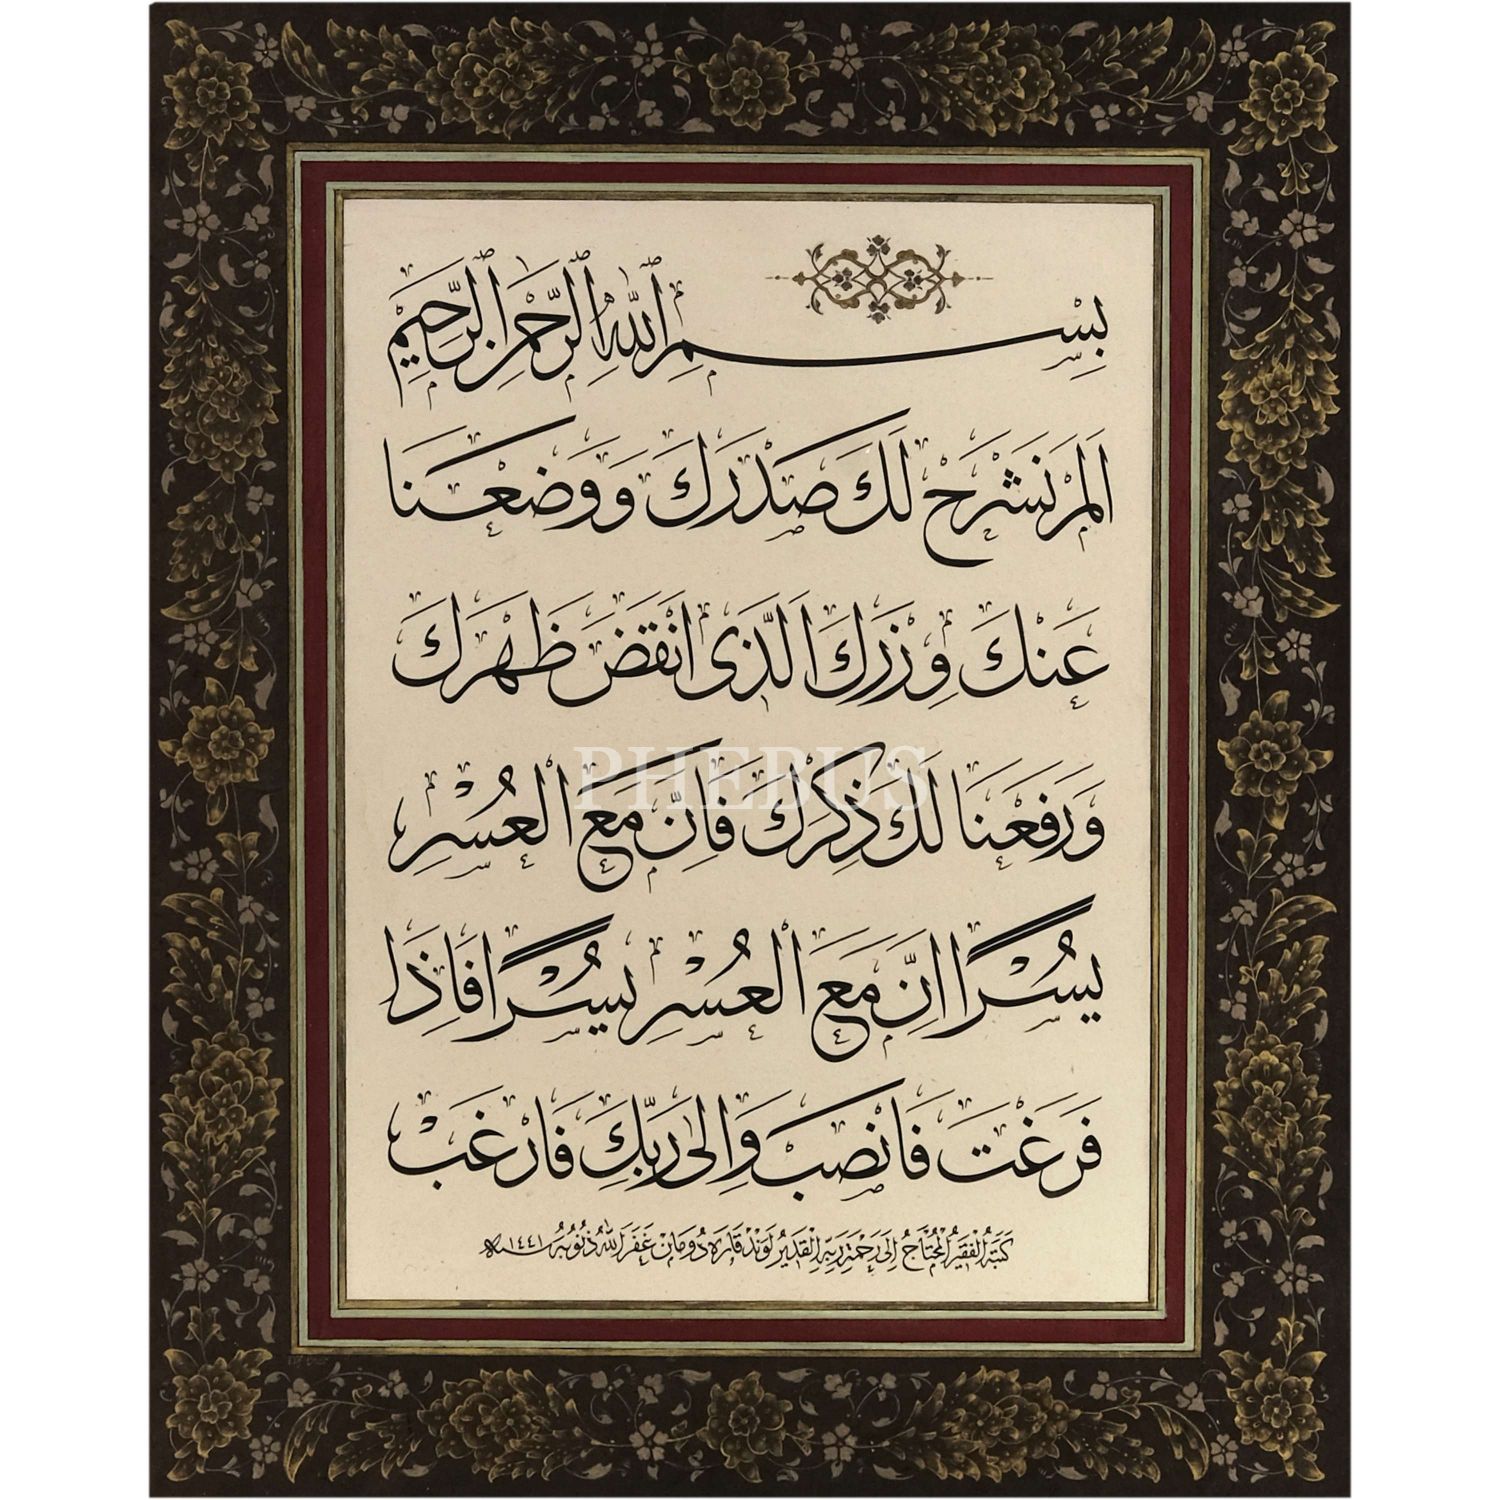 بِسْمِ اللّٰهِ الرَّحْمٰنِ الرَّحِيمِ
اَلَمْ نَشْرَحْ لَكَ صَدْرَكَ وَوَضَعْنَا
عَنْكَ وِزْرَكَ اَلَّذٖى اَنْقَضَ ظَهْرَكَ
وَرَفَعْنَا لَكَ ذِكْرَكَ فَاِنَّ مَعَ الْعُسْرِ
PHEBUS
يُسْرًا اِنَّ مَعَ الْعُسْرِ يُسْرًا فَاِذَا
فَرَغْتَ فَانْصَبْ وَاِلٰى رَبِّكَ فَارْغَبْ
كتبه الفقير المحتاج الى رحمة ربه القدير لوند قاره دومان غفر الله ذنوبه سنه ١٤٤١